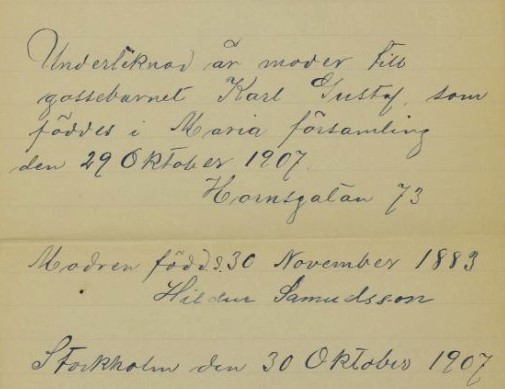 Undertecknad är moder till
gossebarnet Karl Gustaf, som
föddes i Maria församling
den 29 Oktober 1907.
Hornsgatan 73
Modren född d. 30 November 1883
Hildur Samuelsson
Stockholm den 30 Oktober 1907